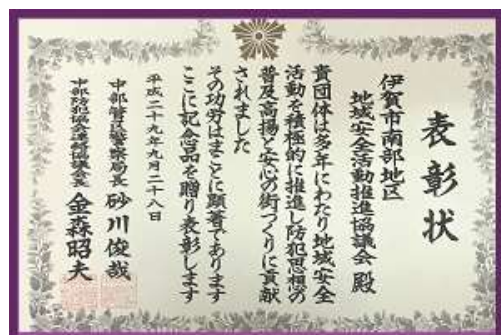 表彰状
伊賀市南部地区
地域安全活動推進協議会 殿
貴団体は多年にわたり地域安全
活動を積極的に推進し防犯思想の
普及高揚と安心の街づくりに貢献
されました
その功労はまことに顕著であります
ここに記念品を贈り表彰します
平成二十九年九月二十八日
中部管区警察局長 砂川俊哉
中部防犯協会連絡協議会長 金森昭夫